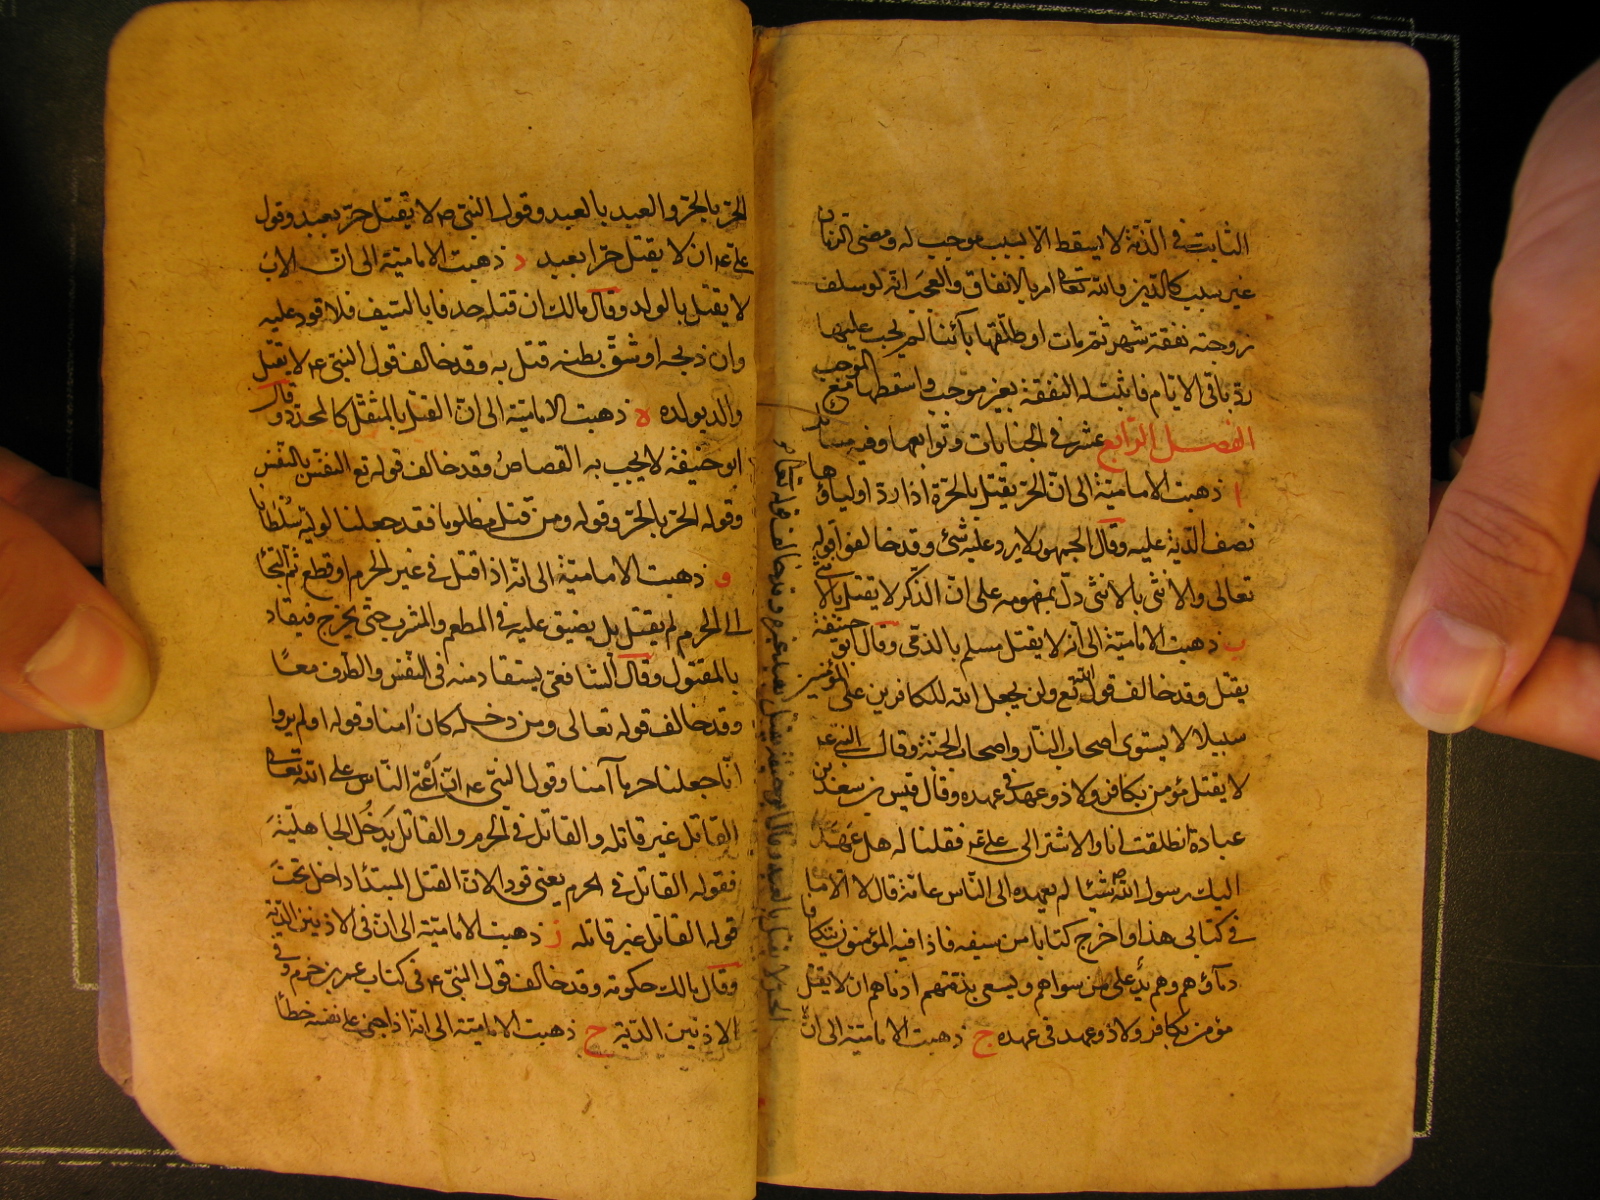 الثابت في الذمة لا يسقط الا بسبب موجب له ومضى الزمان
غير سبب كالدين والله تعالى امر بالانفاق والعجب انه لو سلف
زوجته نفقة شهر ثم مات او طلقها بائنا لم يجب عليها
رد باقي الايام فاثبت له النفقة بغير موجب واسقطها مع الموجب
الفصل الرابع عشر في الجنايات وتوابعها وفيه مسائل
ا ذهبت الامامية الى ان الحر يقتل بالحرة اذا رد اولياؤها
نصف الدية عليه وقال الجمهور لا يرد عليه شئ وقد خالفوا قوله
تعالى والانثى بالانثى دل بمفهومه على ان الذكر لا يقتل بالانثى
ب ذهبت الامامية الى انه لا يقتل مسلم بالذمي وقال ابو حنيفة
يقتل وقد خالف قول الله تع ولن يجعل الله للكافرين على المؤمنين
سبيلا لا يستوى اصحاب النار واصحاب الجنة وقال النبي ع
لا يقتل مؤمن بكافر ولا ذو عهد في عهده وقال قيس بن سعد بن
عبادة انطلقت انا والاشتر الى علي ع فقلنا له هل عهد
اليك رسول الله ص شيئا لم يعهده الى الناس عامة قال لا الا ما
في كتابي هذا واخرج كتابا من سيفه فاذا فيه المؤمنون تتكافؤ
دماؤهم وهم يد على من سواهم ويسعى بذمتهم ادناهم ان لا يقتل
مؤمن بكافر ولا ذو عهد في عهده ج ذهبت الامامية الى ان
الحر لا يقتل بالعبد وقال ابو حنيفة يقتل بعبد غيره وقد خالف قوله تعالى
الحر بالحر والعبد بالعبد وقول النبي ص لا يقتل حر بعبد وقول
علي ع ان لا يقتل حرا بعبد د ذهبت الامامية الى ان الاب
لا يقتل بالولد وقال مالك ان قتله حدفا بالسيف فلا قود عليه
وان ذبحه او شق بطنه قتل به وقد خالف قول النبي ع لا يقتل
والد بولده ه ذهبت الامامية الى ان القتل بالمثقل كالمحدد وقال
ابو حنيفة لا يجب به القصاص وقد خالف قوله تع النفس بالنفس
وقوله الحر بالحر وقوله ومن قتل مظلوما فقد جعلنا لوليه سلطانا
و ذهبت الامامية الى انه اذا قتل في غير الحرم او قطع ثم التجأ
الى الحرم لم يقتل بل يضيق عليه في المطعم والمشرب حتى يخرج فيقاد
بالمقتول وقال الشافعي يستقاد منه في النفس والطرف معا
وقد خالف قوله تعالى ومن دخله كان امنا وقوله اولم يروا
انا جعلنا حرما آمنا وقول النبي ع ان اعتى الناس على الله تعالى
القاتل غير قاتله والقاتل في الحرم والقاتل بدخل الجاهلية
فقوله القاتل في الحرم يعني قودا لان القتل المبتدأ داخل تحت
قوله القاتل غير قاتله ز ذهبت الامامية الى ان في الاذنين الدية
وقال مالك حكومة وقد خالف قول النبي ع في كتاب عمر بن حزم وفي
الاذنين الدية ح ذهبت الامامية الى انه اذا جنى على نفسه خطأ